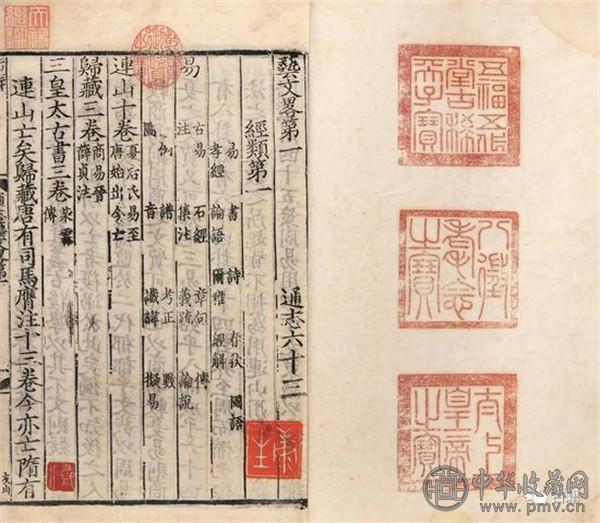 五福五代堂古稀天子寶
八徵耄念之寶
太上皇帝之寶
天祿繼鑑
藝文畧第一 通志六十三
經類第一
易 書 詩 春秋 國語
孝經 論語 爾雅 經解
易
古易 石經 章句 傳
注 集注 義疏 論說
例 譜 考正 數
圖 音 讖緯 擬易
連山十卷
夏后氏易至
唐始出今亡
歸藏三卷
商易晉
薛貞注
三皇太古書三卷
傳
連山亡矣歸藏唐有司馬膺注十三卷今亦亡隋有
中华收藏网
www.pmv.cn